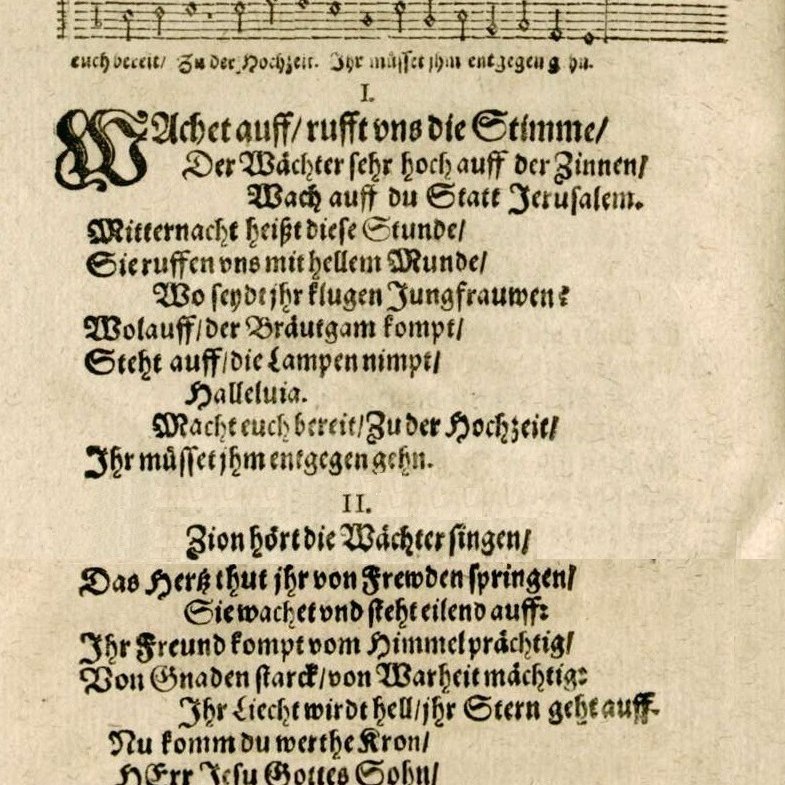 euch bereit/ Zu der Hochzeit. Ihr müsset jhm entgegen g hn.
I.
WAchet auff/ rufft vns die Stimme/
Der Wächter sehr hoch auff der Zinnen/
Wach auff du Statt Jerusalem.
Mitternacht heißt diese Stunde/
Sie ruffen vns mit hellem Munde/
Wo seydt jhr klugen Jungfrauwen?
Wolauff/ der Bräutgam kompt/
Steht auff/ die Lampen nimpt/
Halleluia.
Macht euch bereit/ Zu der Hochzeit/
Ihr müsset jhm entgegen gehn.
II.
Zion hört die Wächter singen/
Das Hertz thut jhr von Frewden springen/
Sie wachet vnd steht eilend auff:
Ihr Freund kompt vom Himmel prächtig/
Von Gnaden starck/ von Warheit mächtig:
Ihr Liecht wirdt hell/ jhr Stern geht auff.
Nu komm du werthe Kron/
HErr Jesu Gottes Sohn/